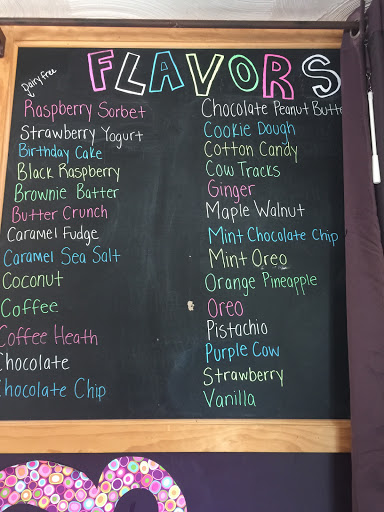 FLAVORS
Dairy free
Raspberry Sorbet
Strawberry Yogurt
Birthday Cake
Black Raspberry
Brownie Batter
Butter Crunch
Caramel Fudge
Caramel Sea Salt
Coconut
Coffee
Coffee Heath
Chocolate
Chocolate Chip
Chocolate Peanut Butte
Cookie Dough
Cotton Candy
Cow Tracks
Ginger
Maple Walnut
Mint Chocolate Chip
Mint Oreo
Orange Pineapple
Oreo
Pistachio
Purple Cow
Strawberry
Vanilla